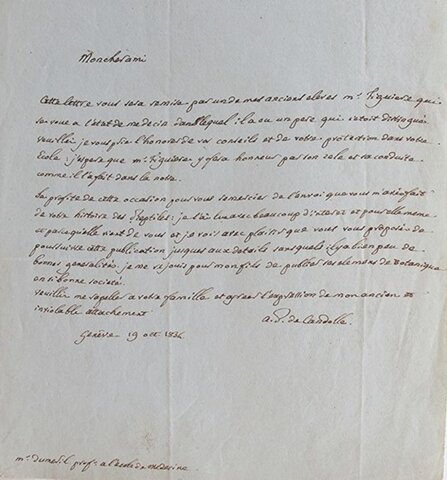 Mon cher ami
Cette lettre vous sera remise par un de mes anciens eleves mr. Figuiere qui
se voue a l'état de medecin dans lequel il a eu un pere qui s'etoit distingué
veuillez je vous prie l'honorer de vos conseils et de votre protection dans votre
Ecole; j'espere que mr. Figuiere y fera honneur par son zele et sa conduite
comme il a fait dans la notre.
Je profite de cette occasion pour vous remercier de l'envoi que vous m'avez fait
de votre histoire des Reptiles: je l'ai lu avec beaucoup d'interet et pour elle meme
et parcequelle vient de vous et je vois avec plaisir que vous vous proposez de
poursuivre cette publication jusques aux details sans quels il y a bien peu de
bonnes generalités. je me rejouis pour mon fils de publier ses elemens de Botanique
en si bonne société.
veuillez me rapeller a votre famille et agreer l'expression de mon ancien et
inviolable attachement
a. P. de Candolle.
Genève 19 oct 1834
mr. Dumeril profr. a l'ecole de medecine